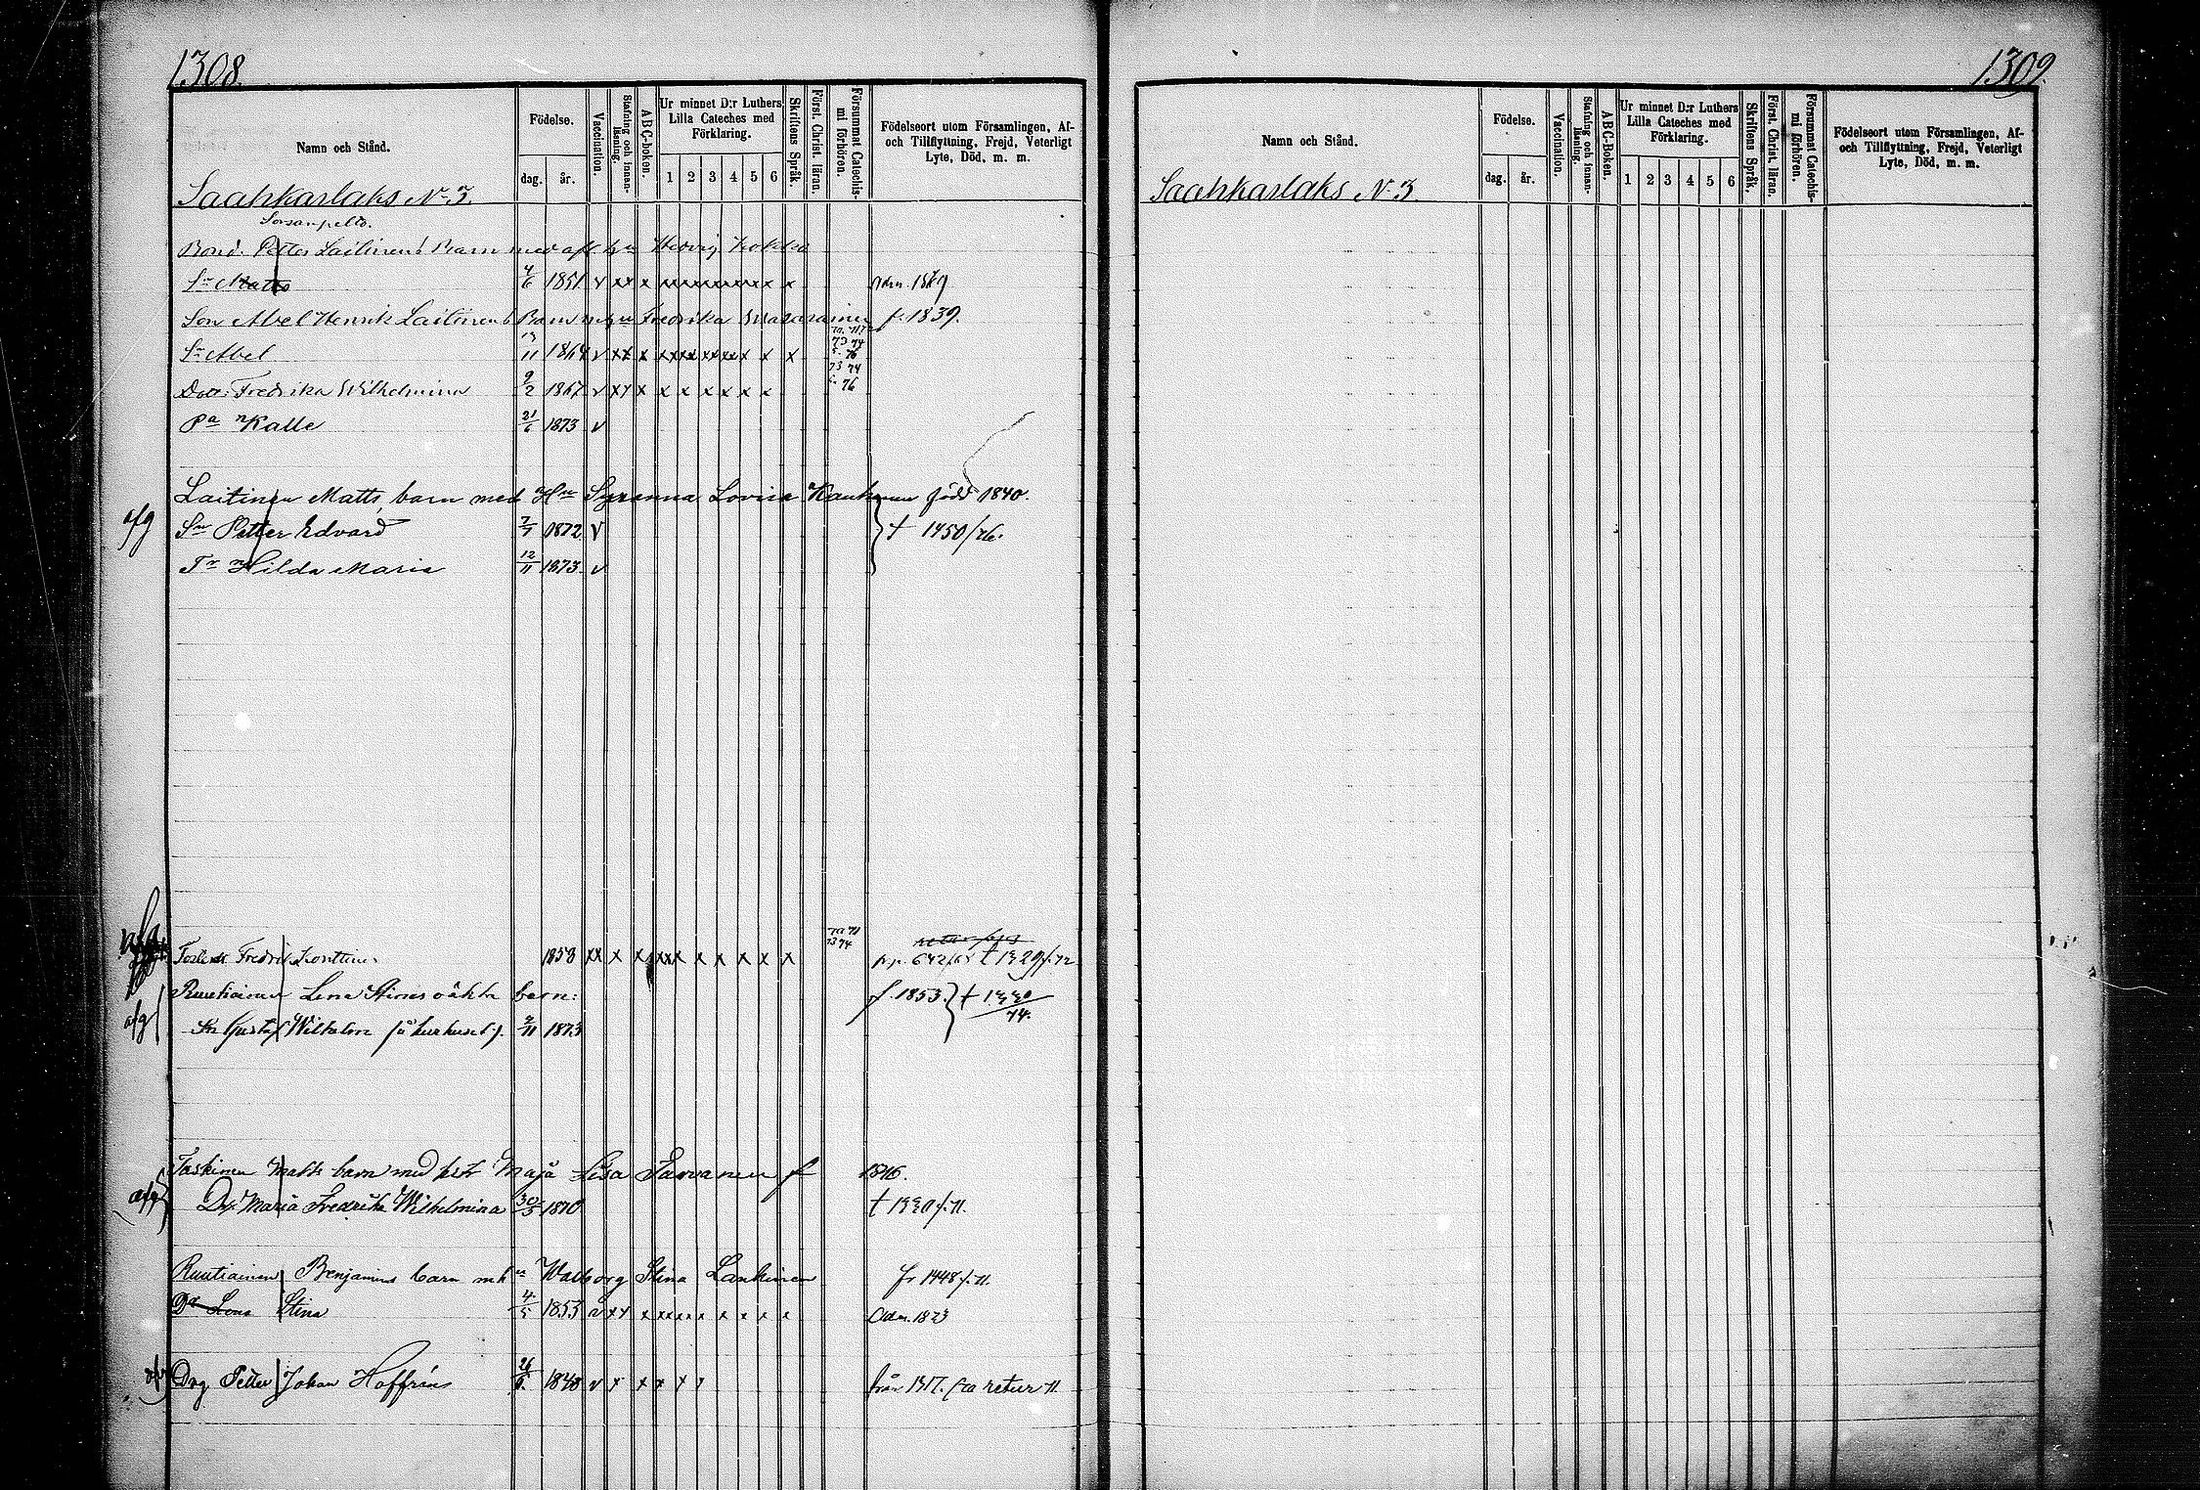 1308.
Namn och Stånd.
Födelse.
dag. år.
Vaccination.
Stafning och innanläsning.
ABC-boken.
Ur minnet D:r Luthers Lilla Cateches med Förklaring.
1 2 3 4 5 6
Skriftens Språk.
Först. Christ. läran.
Försummat Catechismi förhören.
Födelseort utom Församlingen, Af- och Tillflyttning, Frejd, Veterligt Lyte, Död, m. m.
Saahkarlaks No 3.
Sorsanpelto.
Bond. Petter Laitinens Barn med afl. hu Hedvig Kokko
Sn Matts 4/6 1851 v xx x x x Adm. 1869
Son Abel Henrik Laitinens Barn m hu Fredrika f. 1839.
73 74
Sn Abel 11 1864 v xx x x x x
76
73 74
Dott: Fredrika Wilhelmina 9/2 1867 v xx x x x x x x x
76
Kalle 21/6 1873 v
Laitinen Matts, barn med Hu Susanna Lovisa född 1840.
afg Sn Petter Edvard 7/7 1872 v } t 1450/76.
Hilda Maria 12/11 1873. v
73 74
Fredrik 1858 xx x x xxx x x x x x 642/65 t 1329/72
Ruutiainen Lena Stinas oäkta barn: f. 1853. } t 1330/74.
afg Sn Gustaf Wilhelm 2/11 1873
Taskinen Matts barn med hust Maja Lisa Tarvanen f 1846.
afg Dr Maria Fredrika Wilhelmina 30/3 1870 t 1330/71.
Ruutiainen Benjamins barn m hu Walborg Stina Lankinen fr 1448/71.
Dr Lena Stina 4/5 1853 v xx x xxxx x x x x x Adm. 1873
Drg Petter Johan Hoffrén 26 1848 v x x x x x från 1317. retur 71
1309.
Namn och Stånd.
Födelse.
dag. år.
Vaccination.
Stafning och innanläsning.
ABC-Boken.
Ur minnet D:r Luthers Lilla Cateches med Förklaring.
1 2 3 4 5 6
Skriftens Språk.
Först. Christ. läran.
Försummat Catechismi förhören.
Födelseort utom Församlingen, Af- och Tillflyttning, Frejd, Veterligt Lyte, Död, m. m.
Saahkarlaks No 3.